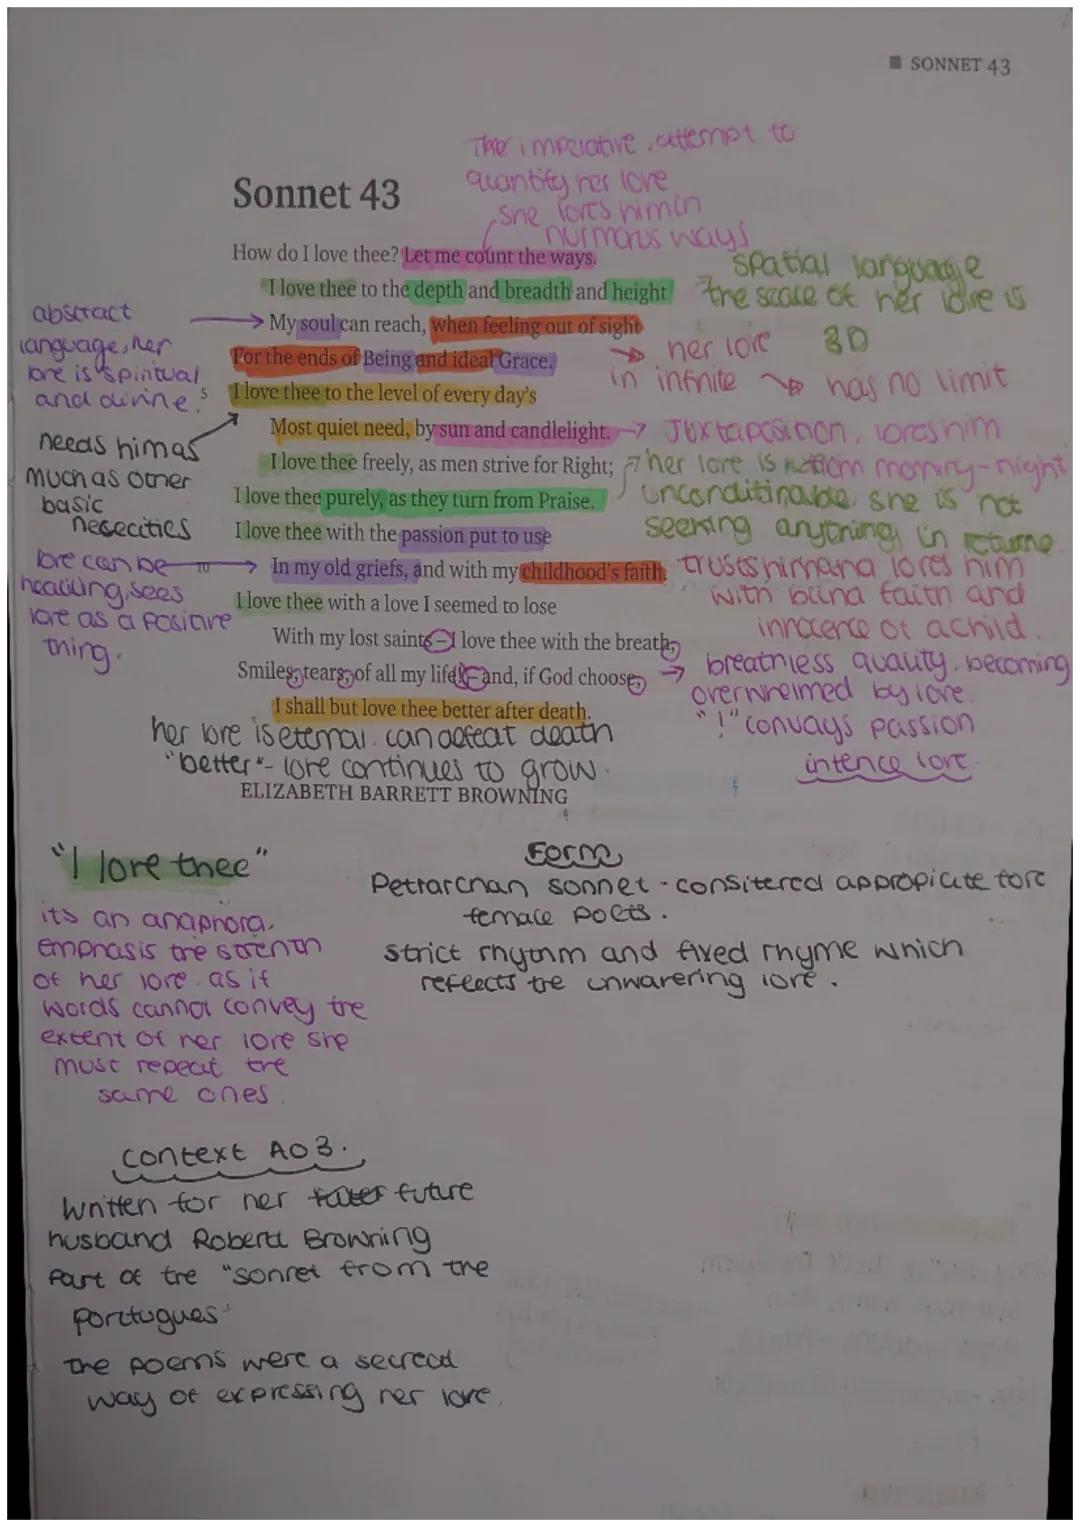 ■ SONNET 43
The imperative, attempt to
quantify her love
she loves him in
numorus ways
Sonnet 43
How do I love thee? Let me count the ways.
I love thee to the depth and breadth and height
My soul can reach, when feeling out of sight
For the ends of Being and ideal Grace.
I love thee to the level of every day's
5
Most quiet need, by sun and candlelight.
I love thee freely, as men strive for Right;
I love thee purely, as they turn from Praise.
I love thee with the passion put to use
In my old griefs, and with my childhood's faith.
10
I love thee with a love I seemed to lose
With my lost saints – I love thee with the breath,
Smiles, tears, of all my life! – and, if God choose,
I shall but love thee better after death.
ELIZABETH BARRETT BROWNING
spatial language
the scale of her love is
3D
her love
in infnite → has no limit
Juxtaposition, loves him
from morning-night
her love is
unconditinable. she is not
seeking anything in returne
trusts him and loves him
with blind faith and
innocence of a child.
breathless quality. becoming
overwhelmed by love.
"!" convays passion
intence love.
abstract
language, her
love is spiritual
and divine.
needs him as
much as other
basic
nececities
love can be
healing, sees
love as a positive
thing.
her love is eternal. can defeat death
"better" - love continues to grow.
"I love thee"
its an anaphora.
emphasis the strenth
of her love. as if
words cannot convey the
extent of her love she
must repeat the
same ones.
Form
Petrarchan sonnet - consitered appropicite fore
female poets.
strict rhythm and fixed rhyme which
reflects the unwavering love.
context AO3.
written for her future
husband Robert Browning
Part of the "sonnet from the
portugues"
the poems were a secread
way of expressing her love.